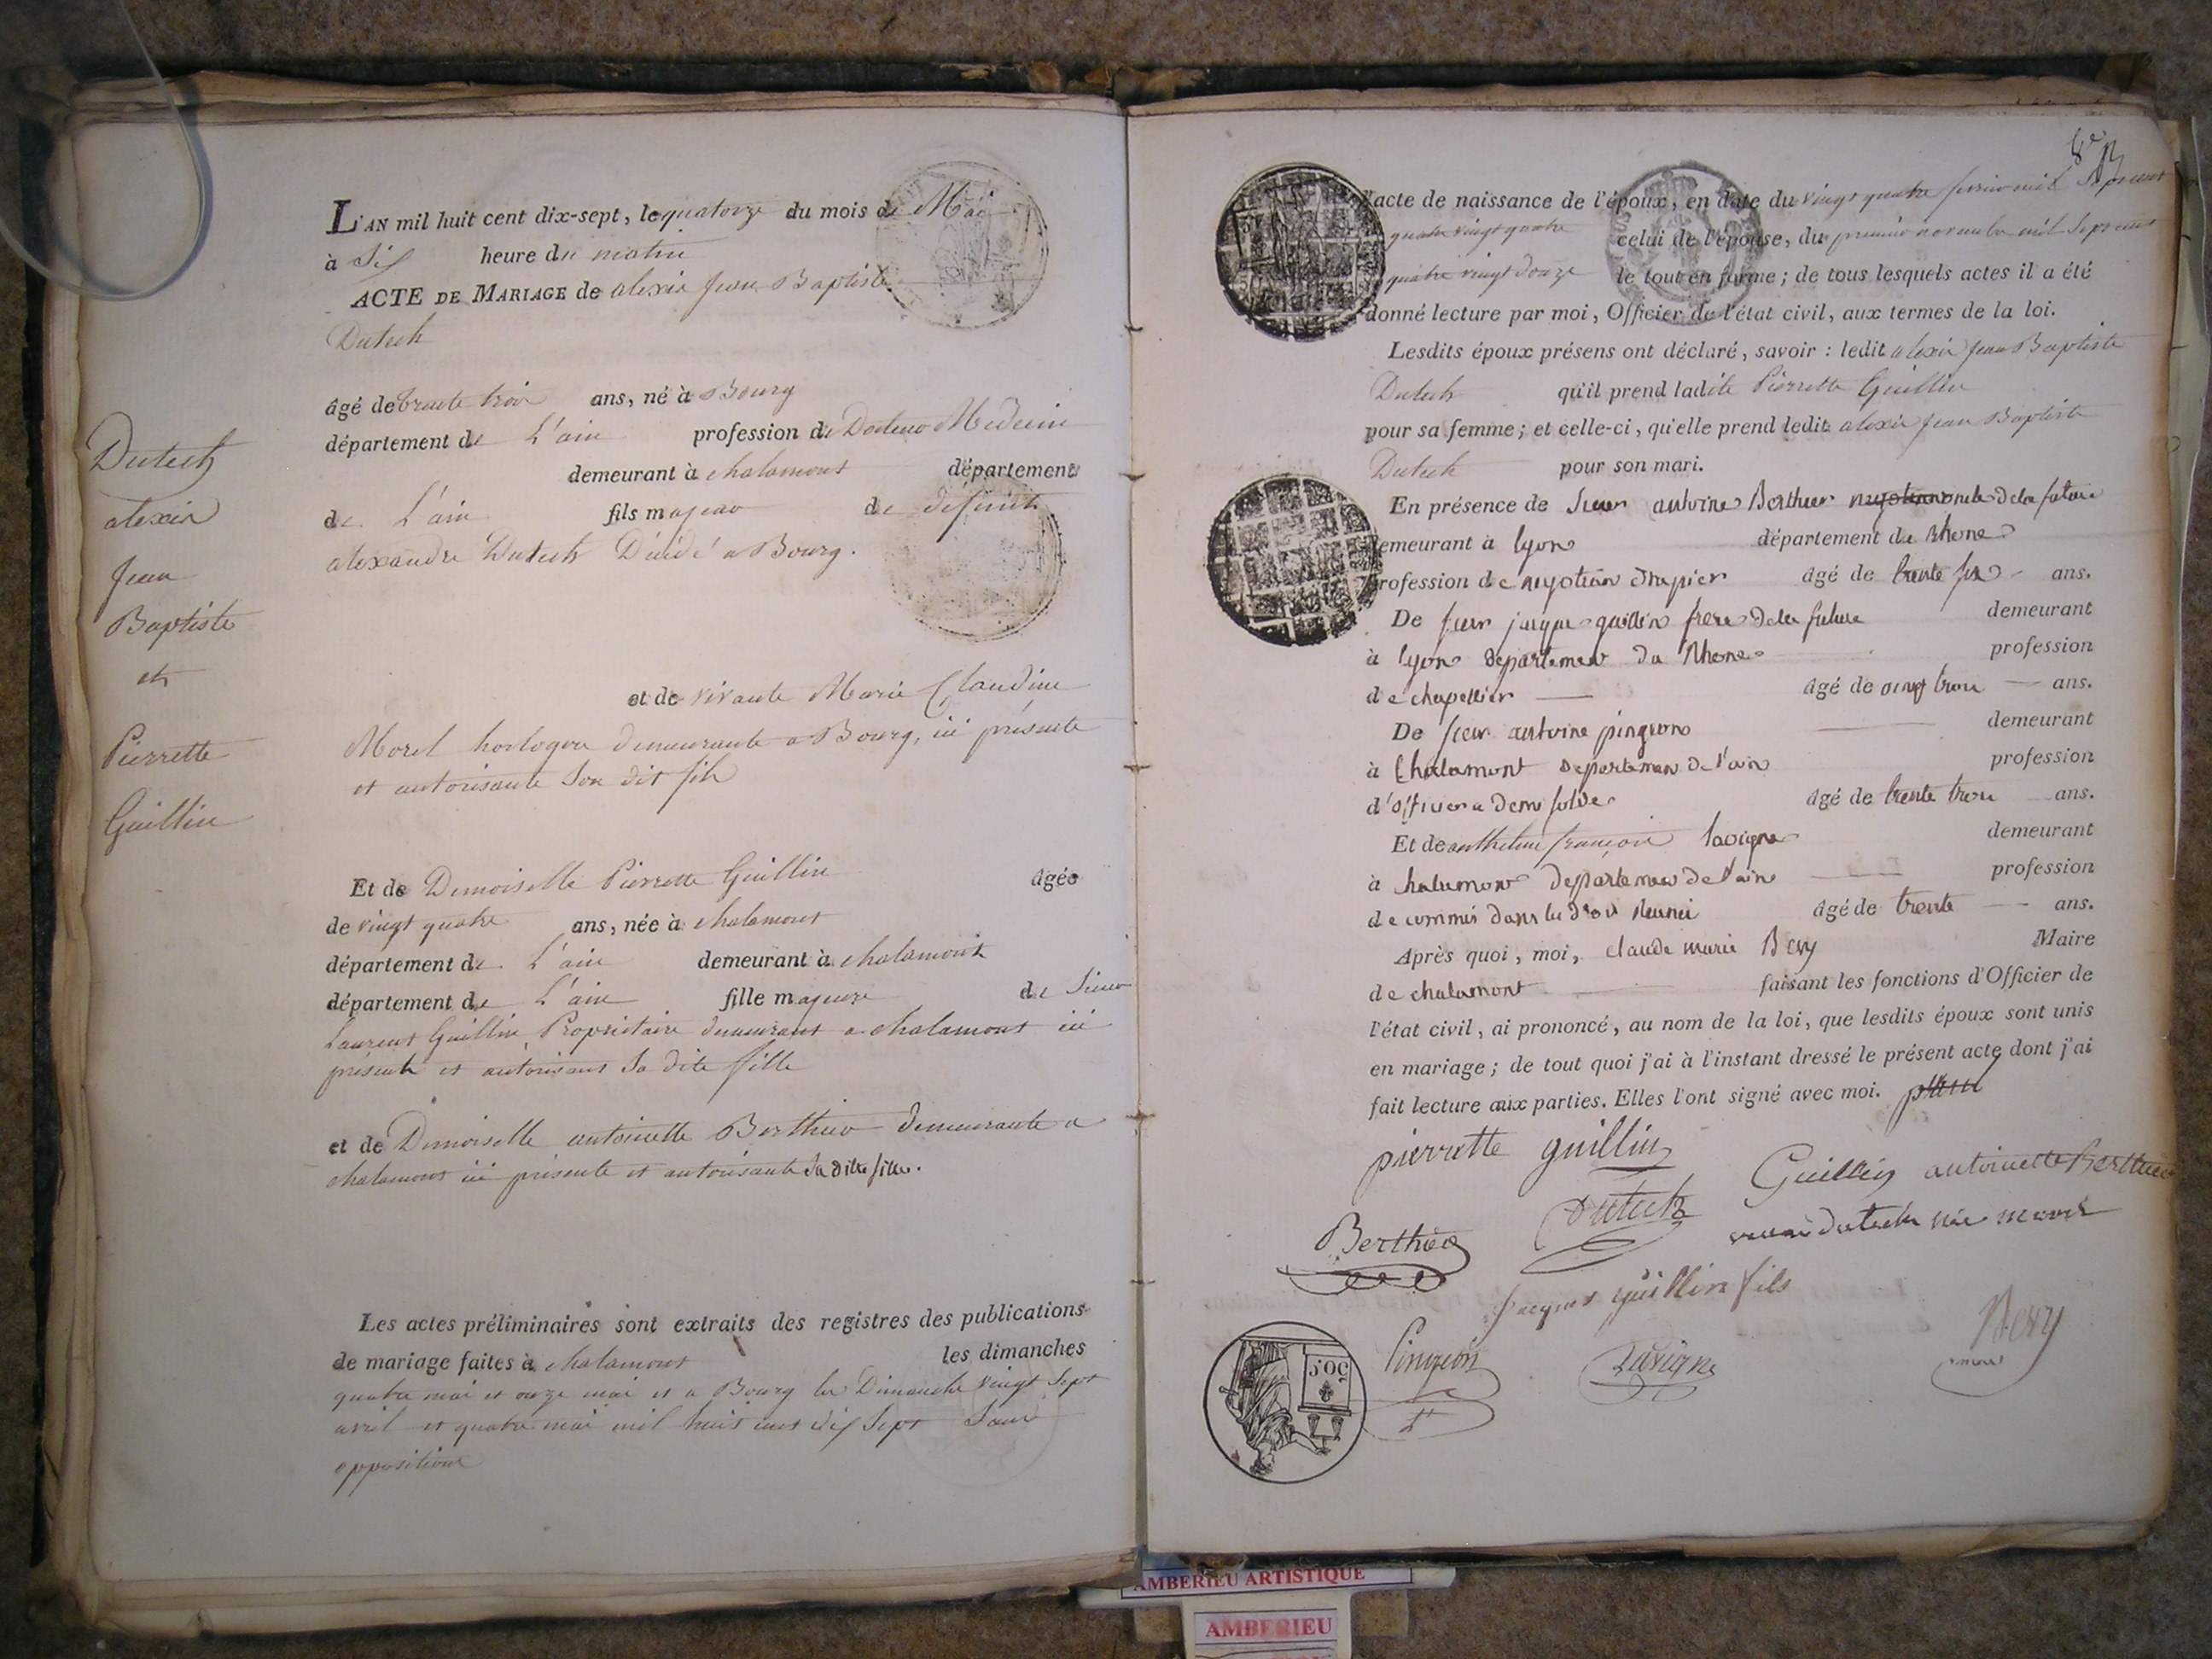 Dutech
alexis
Jean
Baptiste
et
Pierrette
Guillin
L'AN mil huit cent dix-sept, le quatorze du mois de Mai
à Six heure du matin
ACTE DE MARIAGE de alexis Jean Baptiste
Dutech
âgé de trente trois ans, né à Bourg
département de L'ain profession de Docteur Medecin
demeurant à chalamont département
de L'ain fils majeur de deffunt
alexandre Dutech Décédé a Bourg.
et de vivante Marie Claudine
Morel horlogere demeurante a Bourg, ici présente
et autorisante Son dit fils
Et de Demoiselle Pierrette Guillin âgée
de vingt quatre ans, née à chalamont
département de L'ain demeurant à chalamont
département de L'ain fille majeure de Sieur
Laurent Guillin Propriétaire demeurant a chalamont ici
présent et autorisant Sa dite fille
et de Demoiselle antoinette Berthier demeurante a
chalamont ici présente et autorisante Sa dite fille.
Les actes préliminaires sont extraits des registres des publications
de mariage faites à chalamont les dimanches
quatre mai et onze mai et a Bourg les Dimanche vingt Sept
avril et quatre mai mil huit cent dix Sept Sans
opposition
l'acte de naissance de l'époux, en date du vingt quatre fevrier mil Sept cent
quatre vingt quatre celui de l'épouse, du premier novembre mil Sept cent
quatre vingt douze le tout en forme; de tous lesquels actes il a été
donné lecture par moi, Officier de l'état civil, aux termes de la loi.
Lesdits époux présens ont déclaré, savoir: ledit alexis Jean Baptiste
Dutech qu'il prend ladite Pierrette Guillin
pour sa femme; et celle-ci, qu'elle prend ledit alexis Jean Baptiste
Dutech pour son mari.
En présence de Sieur antoine Berthier de la future
demeurant à lyon département du Rhone
profession de negotian drapier âgé de trente six ans.
De sieur jacque guillin frere de la future demeurant
à lyon departement du Rhone profession
de chapellier âgé de vingt trois ans.
De sieur antoine pingeon demeurant
à Chalamont departemen de l'ain profession
d'officier a demi solde âgé de trente trois ans.
Et de anthelme françois lavigne demeurant
à chalamont departemen de l'ain profession
de commis dans les droi Reunei âgé de trente ans.
Après quoi, moi, claude marie Bevy Maire
de chalamont faisant les fonctions d'Officier de
l'état civil, ai prononcé, au nom de la loi, que lesdits époux sont unis
en mariage; de tout quoi j'ai à l'instant dressé le présent acte dont j'ai
fait lecture aux parties. Elles l'ont signé avec moi.
pierrette guillin
Guillin antoinette Berthier
Dutech
Berthier
dutech née morel
Jacques guillin fils
Pingeon
Lavigne
Bevy
maire
50c
AMBERIEU ARTISTIQUE
AMBERIEU